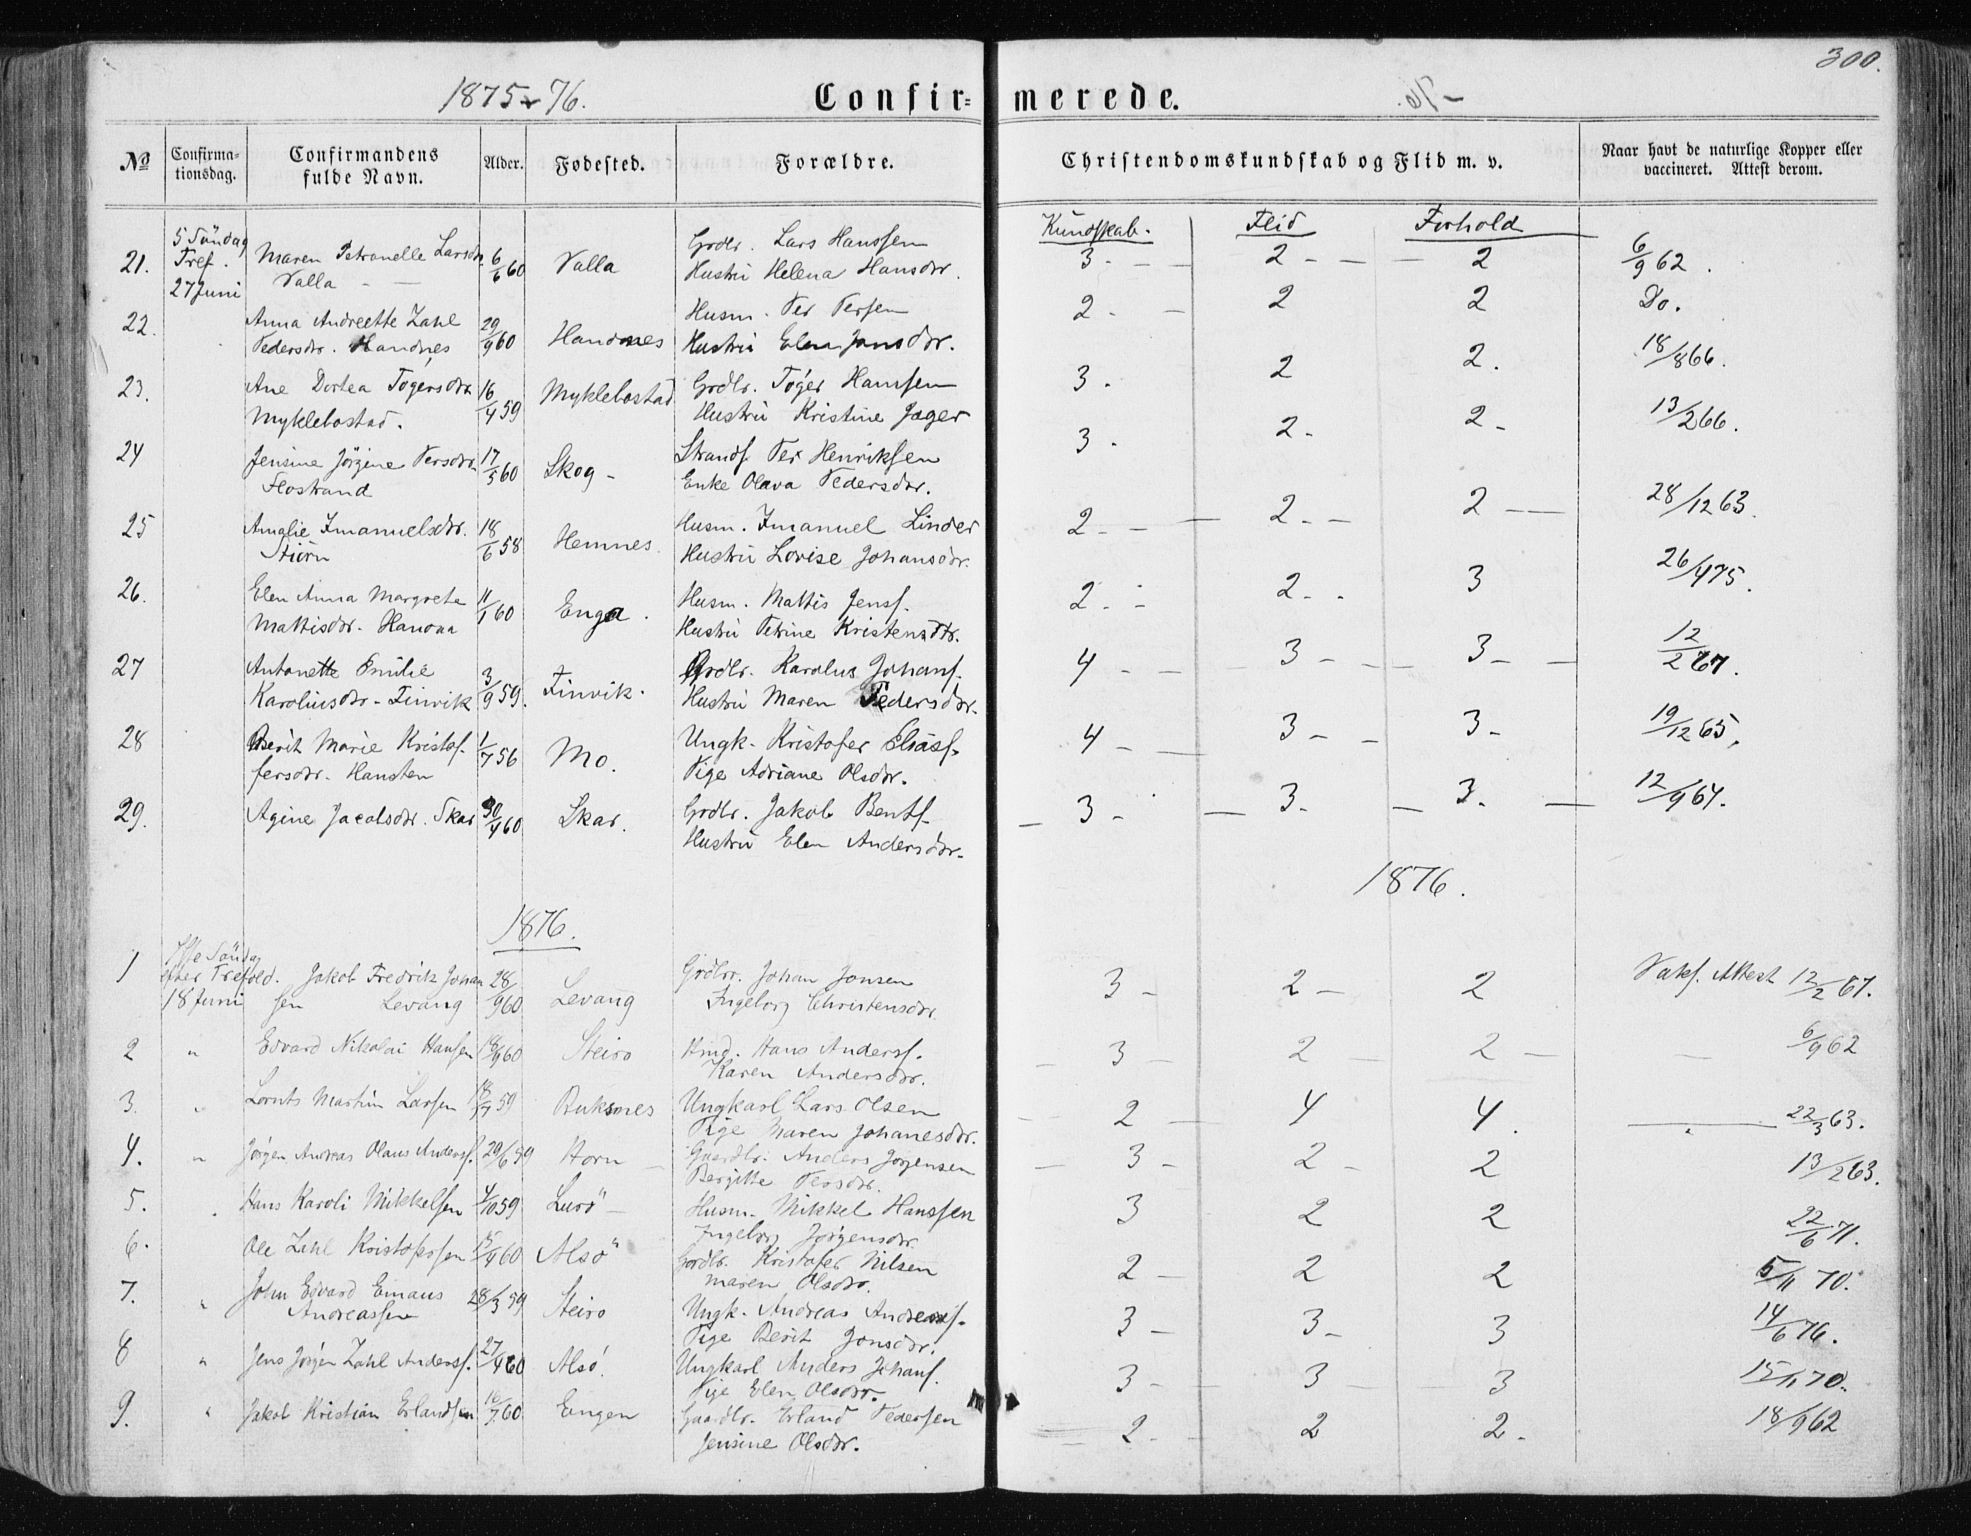 300.
1875-76.
Confirmerede.
№
Confirmationsdag.
Confirmandens fulde Navn.
Alder.
Fødested.
Forældre.
Christendomskundskab og Flid m. v.
Naar havt de naturlige Kopper eller vaccineret. Attest derom.
Kundskab. Flid Forhold
21. 5 Søndag Tref. 27 Juni Maren Petronelle Larsdr. Valla 6/6 60 Valla Grdbr. Lars Hanssen Hustru Helena Hansdr. 3 - 2 - 2 6/9 62.
22. Anna Andreette Zahl Pedersdr. Handnes 29/9 60 Handnes Husm. Per Persen Hustru Elen Jonsdr. 2. 2 2 Do.
23. Ane Dortea Tøgersdr. Myklebostad. 16/4 59 Myklebostad Grdbr. Tøger Hansen Hustru Kristine Jager 3. 2 2. 18/8 66.
24 Jensine Jørgine Persdr. Flostrand 17/5 60 Skog - Strands. Per Henriksen Enke Olava Pedersdr. 3. 2. 2- 13/2 66.
25 Amalie Imanuelsdr. Stien 18/6 58 Hemnes. Husm. Imanuel Linder Hustru Lovise Johansdr. 2 - 2 - 2 - 28/12 63.
26. Elen Anna Margrete Mattisdr. 11/1 60 Enga. Husm. Mattis Jenss. Hustru Petrine Kristensdtr. 2. 2. 3 26/4 75.
27 Antonette Emilie Karoliusdr - Finvik 3/9 59. Finvik. Grdbr. Karolus Johans. Hustru Maren Pedersdr. 4 - 3 - 3 - 12/2 67.
28 Berit Marie Kristoffersdr. Hansten 1/7 56 Mo. Ungk. Kristofer Eliass. Pige Adriane Olsdr. 4 - 3 - 3 - 19/12 65.
29. Agine Jacobsdr. Skar 30/4 60 Skar. Grdbr. Jakob Bents. Hustru Elen Andersdr. 3 - 3. 3. 12/9 64.
1876. 1876.
1 Søndag efter Trefold. 18 Juni Jakob Fredrik Johansen Levang 28/9 60 Levang Grdbr. Johan Jonsen Ingeborg Christensdr. 3 - 2 - 2 Vaks. Attest 12/2 67.
2 " Edvard Nikolai Hansen 18/9 60 Steiro Hans Anderss. Karen Andersdr. 3 - 2 - 2 - 6/9 62
3. " Lornts Martin Larsen 59 Buksnes Ungkarl Lars Olsen Pige Maren Johanesdr. 2 4 4. " 22/3 63.
4. " Jørgen Andreas Olaus Anderss. 29/6 59 Horn Gaardbr. Anders Jørgensen Bergitte Persdr. 3 - 2 - 2 13/2 63.
5. " Hans Karoli Mikkelsen 4/10 59 Lurø - Husm. Mikkel Hanssen Ingeborg Jørgensdr. 3 2 2 22/6 71.
6. Ole Zahl Kristofersen 15/9 60 Alsø Grdbr. Kristofer Nilsen Maren Olsdr. 2 - 2 2 5/11 70.
7. " John Edvard Emaus Andreassen 28/3 59 Steiro Ungk. Andreas Andreass. Pige Berit Jonsdr. 3 - 3 - 3 14/6 76.
8 " Jens Jørgen Zahl Anderss. 27/4 60 Alsø. Ungkarl Anders Johans. Pige Elen Olsdr. 3 - 3 3 15/11 70.
9. " Jakob Kristian Erlandsen 16/7 60 Engen Gaardbr. Erland Pedersen Jensine Olsdr. 2 - 2 2 - 18/9 62